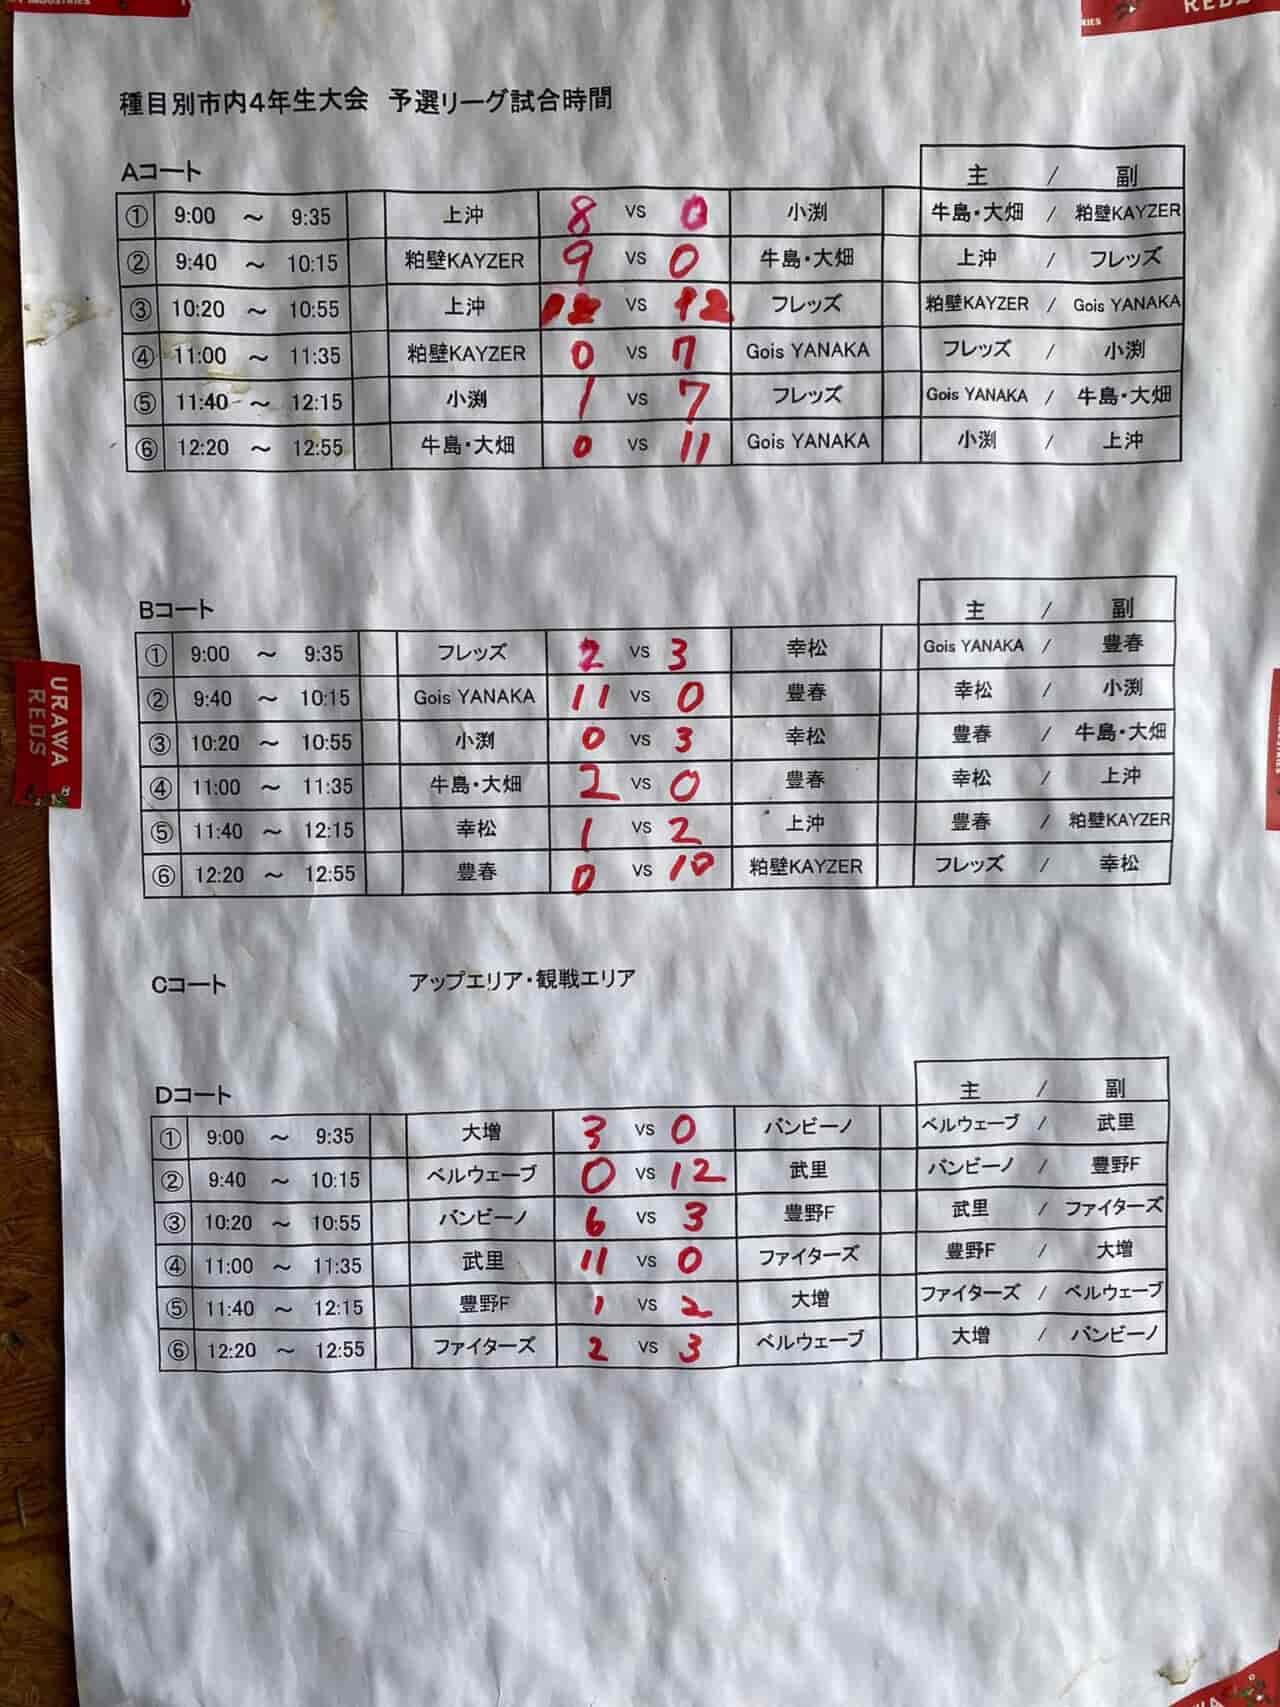 INDUSTRIES
REDS
種目別市内4年生大会 予選リーグ試合時間
Aコート 主 / 副
① 9:00 ～ 9:35 上沖 8 VS 0 小渕 牛島・大畑 / 粕壁KAYZER
② 9:40 ～ 10:15 粕壁KAYZER 9 VS 0 牛島・大畑 上沖 / フレッズ
③ 10:20 ～ 10:55 上沖 VS 12 フレッズ 粕壁KAYZER / Gois YANAKA
④ 11:00 ～ 11:35 粕壁KAYZER 0 VS 7 Gois YANAKA フレッズ / 小渕
⑤ 11:40 ～ 12:15 小渕 1 VS 7 フレッズ Gois YANAKA / 牛島・大畑
⑥ 12:20 ～ 12:55 牛島・大畑 0 VS 11 Gois YANAKA 小渕 / 上沖
Bコート 主 / 副
① 9:00 ～ 9:35 フレッズ 2 VS 3 幸松 Gois YANAKA / 豊春
② 9:40 ～ 10:15 Gois YANAKA 11 VS 0 豊春 幸松 / 小渕
③ 10:20 ～ 10:55 小渕 0 VS 3 幸松 豊春 / 牛島・大畑
④ 11:00 ～ 11:35 牛島・大畑 2 VS 0 豊春 幸松 / 上沖
⑤ 11:40 ～ 12:15 幸松 1 VS 2 上沖 豊春 / 粕壁KAYZER
⑥ 12:20 ～ 12:55 豊春 0 VS 10 粕壁KAYZER フレッズ / 幸松
URAWA
REDS
Cコート アップエリア・観戦エリア
Dコート 主 / 副
① 9:00 ～ 9:35 大増 3 VS 0 バンビーノ ベルウェーブ / 武里
② 9:40 ～ 10:15 ベルウェーブ 0 VS 12 武里 バンビーノ / 豊野F
③ 10:20 ～ 10:55 バンビーノ 6 VS 3 豊野F 武里 / ファイターズ
④ 11:00 ～ 11:35 武里 11 VS 0 ファイターズ 豊野F / 大増
⑤ 11:40 ～ 12:15 豊野F 1 VS 2 大増 ファイターズ / ベルウェーブ
⑥ 12:20 ～ 12:55 ファイターズ 2 VS 3 ベルウェーブ 大増 / バンビーノ